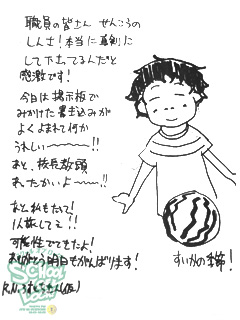 職員の皆さん せんころの
しんさ!本当に真剣に
して下さってるんだと
感激です!
今日は掲示板で
みかけた書き込みが
よくよまれて何か
うれしい〜〜〜!!
あと、校長教頭
あったかいよ〜〜!!
あと私もたって!
人旅してぇ!!
可能性でてきたよ!
ありがとう明日もがんばります!
R.N.
(仮)
すいかの季節!
SCHOOL
OF LOCK!